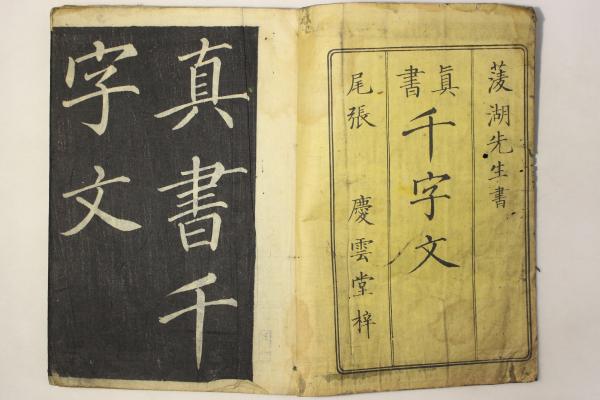 菱湖先生書
眞書
千字文
尾張 慶雲堂梓
真書千
字文